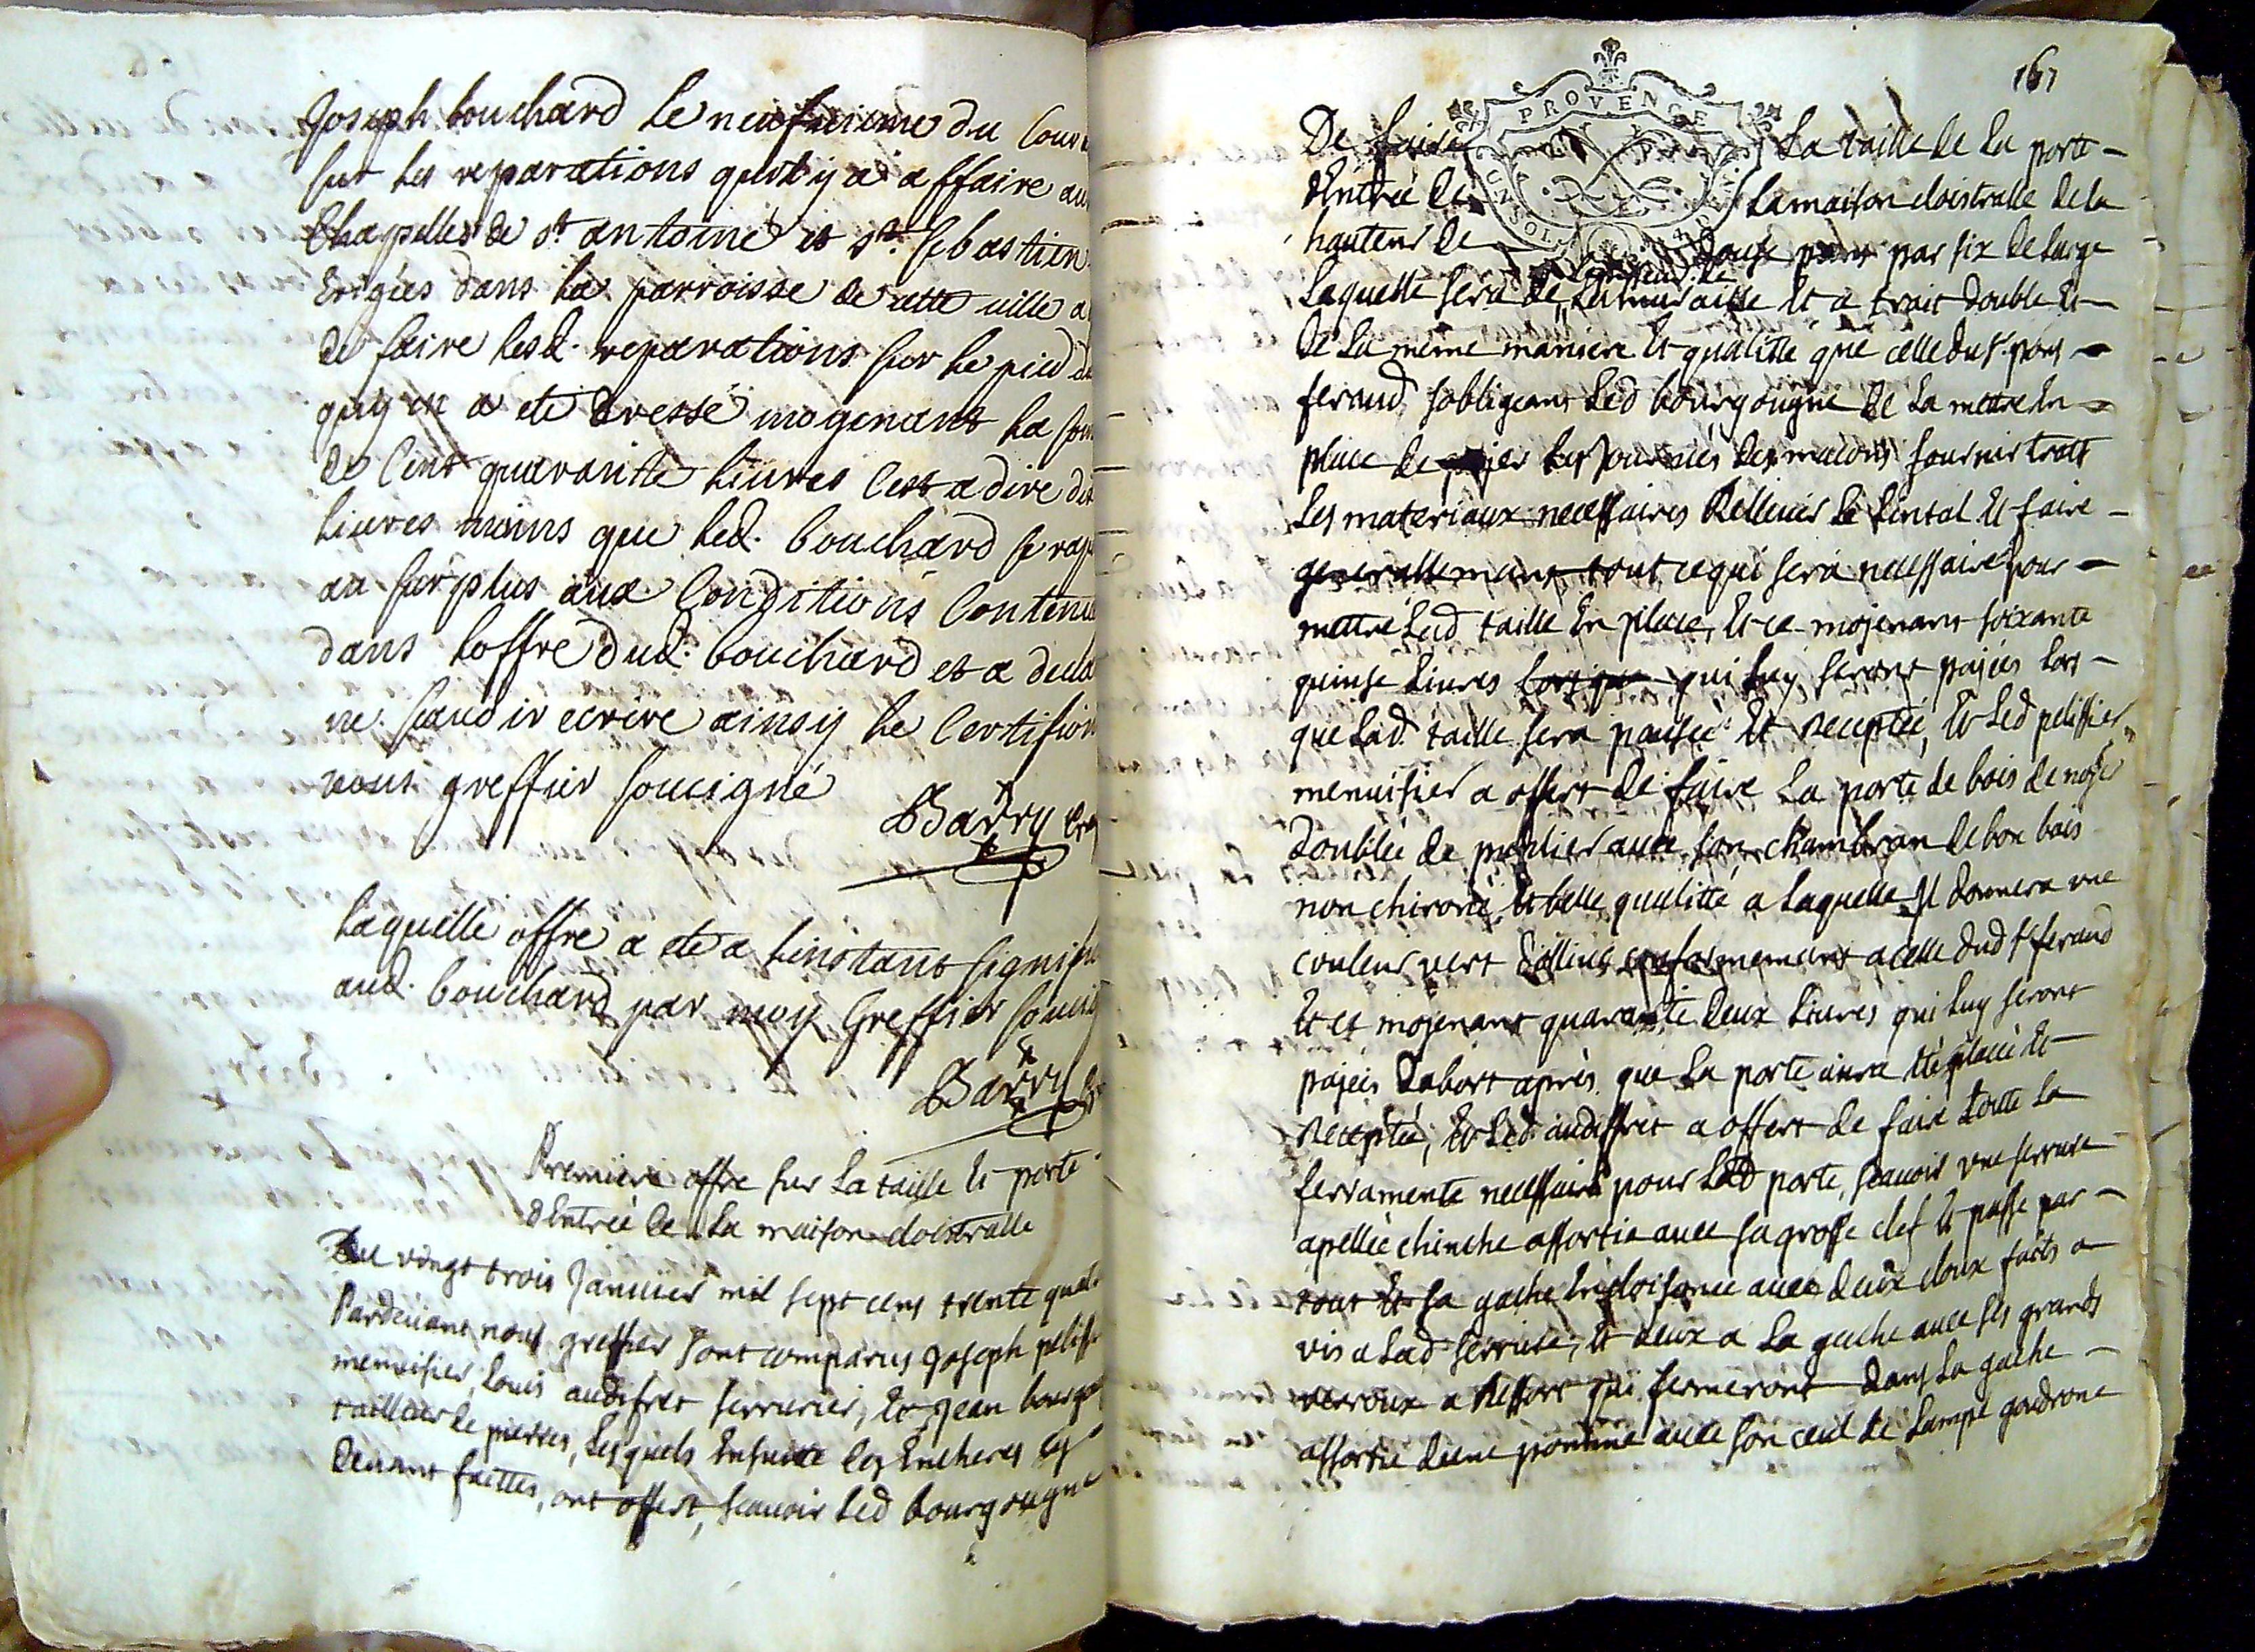 Joseph bouchard le neufuieme du Cour
sur les reparations qu'il y a affaire aux
Chapelles de st antoine et st sebastien
Erigées dans la parroisse de cette uille
de faire lesd. reparations sur le pied
quy en a ete dressé moyenant la som
de Cent quarante liures Cest a dire dix
liures moins que led. bouchard se rap
au surplus aux Conditions Contenue
dans loffre dud. bouchard et a declaré
ne scauoir ecrire ainsy le Certifion
nous greffier soucigné
Barry
Laquelle offre a ete a linstant signifi
aud. bouchard par moy Greffier soucig
Barry
Premiere offre sur La taille Et porte
dEntrée de La maison cloistralle
Du vingt trois Januier mil sept cens trente quat
Pardeuant nous greffier sont comparus Joseph pelissi
menuisier, Louis audifret serrurier, Et Jean bourgou
tailleur de pierres, Lesquels Ensuitte les Encheres cy
Deuant faittes, ont offert, scauoir Led bourgougne
167
PROVENCE
De faire La taille de La porte
dEntrée de La maison cloistralle de la
hauteur de douse pans par six de large
Laquelle sera de Lepaisseur de La muraille Et a trait double Et
de La même maniere Et qualitté que celle du sr. pons
feraud, sobligeant Led bourgougne de La mettre En
place de payer Les Journées des maçons fournir touts
Les materiaux necessaires Relleuer Le Lintal Et faire
generallemant tout ce qui sera necessaire pour
mettre Lad taille En place, Et ce moyenant soixante
quinse Liures qui Luy seront payées Lors
que Lad. taille sera pausée Et receptée, Et Led pelissier
menuisier a offert de faire La porte de bois de noyer
doublée de peuplier auec son chambran de bon bois
non chironé, Et belle qualitté a Laquelle Il donnera une
couleur vert dolliue conformemant a celle dud sr feraud
Et ce moyenant quarante deux Liures qui Luy seront
payées dabort après que La porte aura été placée Et
receptée; Et Led. audiffret a offert de faire toute La
ferramente necessaire pour Lad porte, scauoir une serrure
apellée chinche assortie auec sa grosse clef Et passe par
tout Et sa gache Encloisonée auec deux cloux faits a
vis a Lad serrure, Et deux a La gache auec ses grands
verroux a Ressort qui fermeront dans La gache
assortie dune pomme auec son ceul de Lampe godrone